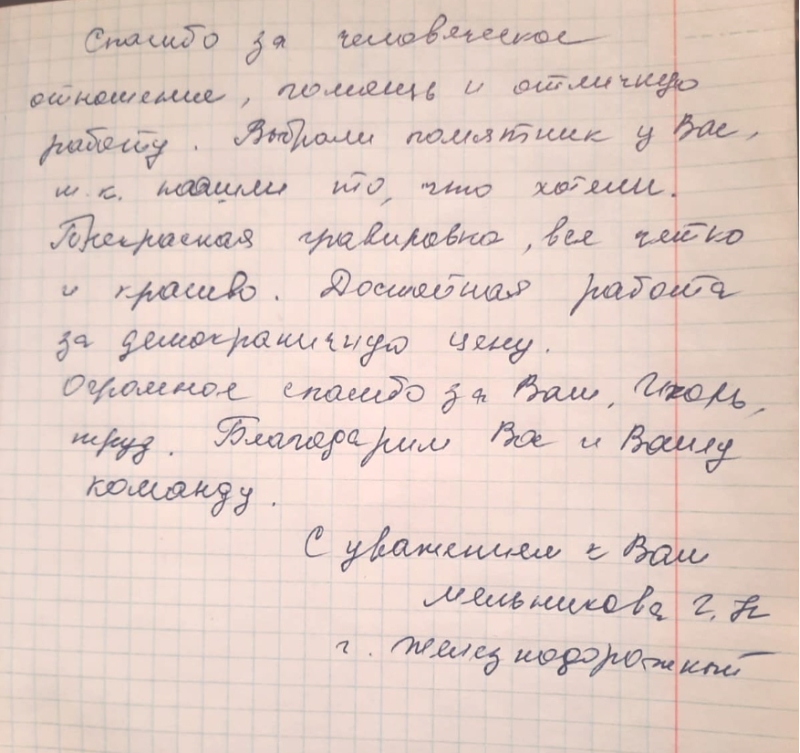 Спасибо за человеческое
отношение, помощь и отличную
работу. Выбрали помятник у Вас,
т.к. нашли то, что хотели.
Прекрасная гравировка, все четко
и красиво. Достойная работа
за демократичную цену.
Огромное спасибо за Ваш, Игорь,
труд. Благодарим Вас и Вашу
команду.
С уважением к Вам
Мельникова Г. Н
г. Железнодорожный